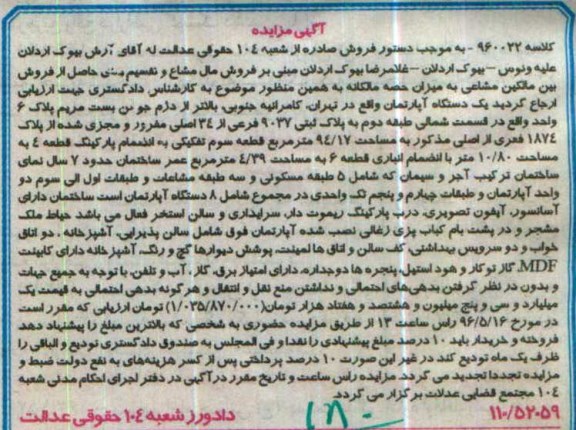 آگهی مزایده
کلاسه ۹۶۰۰۲۲ - به موجب دستور فروش صادره از شعبه ۱۰۴ حقوقی عدالت له آقای آرش بیوک اردلان
علیه ونوس - بیوک اردلان - غلامرضا بیوک اردلان مبنی بر فروش مال مشاع و تقسیم بهای حاصل از فروش
بین مالکین مشاعی به میزان حصه مالکانه به همین منظور موضوع به کارشناس دادگستری جهت ارزیابی
ارجاع گردید یک دستگاه آپارتمان واقع در تهران، کامرانیه جنوبی، بالاتر از دزم جو بن بست مریم پلاک ۶
واحد واقع در قسمت شمالی طبقه دوم به پلاک ثبتی ۹۰۳۷ فرعی از ۳۴ اصلی مفروز و مجزی شده از پلاک
۱۸۷۴ فعری از اصلی مذکور به مساحت ۹۴/۱۷ مترمربع قطعه سوم تفکیکی به انضمام پارکینگ قطعه ۴ به
مساحت ۱۰/۸۰ متر با انضمام انباری قطعه ۶ به مساحت ۴/۳۹ مترمربع عمر ساختمان حدود ۷ سال نمای
ساختمان ترکیب آجر و سیمان که شامل ۵ طبقه مسکونی و سه طبقه مشاعات و طبقات اول الی سوم دو
واحد آپارتمان و طبقات چهارم و پنجم تک واحدی در مجموع شامل ۸ دستگاه آپارتمان است ساختمان دارای
آسانسور، آیفون تصویری، درب پارکینگ ریموت دار، سرایداری و سالن استخر فعال می باشد حیاط ملک
مشجر و در پشت بام کباب پزی زغالی نصب شده آپارتمان فوق شامل سالن پذیرایی، آشپزخانه، دو اتاق
خواب و دو سرویس بهداشتی، کف سالن و اتاق ها لمینت، پوشش دیوارها گچ و رنگ، آشپزخانه دارای کابینت
MDF، گاز توکار و هود استیل، پنجره ها دوجداره، دارای امتیاز برق، گاز، آب و تلفن، با توجه به جمیع جهات
و بدون در نظر گرفتن بدهی‌های احتمالی و نداشتن منع نقل و انتقال و هرگونه بدهی احتمالی به قیمت یک
میلیارد و سی و پنج میلیون و هشتصد و هفتاد هزار تومان(۱/۰۳۵/۸۷۰/۰۰۰) تومان ارزیابی که مقرر است
در مورخ ۹۶/۵/۱۶ راس ساعت ۱۳ از طریق مزایده حضوری به شخصی که بالاترین مبلغ را پیشنهاد دهد
فروخته و خریدار باید ۱۰ درصد مبلغ پیشنهادی را نقدا و فی المجلس به صندوق دادگستری تودیع و الباقی را
ظرف یک ماه تودیع کند در غیر این صورت ۱۰ درصد پرداختی پس از کسر هزینه‌های به نفع دولت ضبط و
مزایده تجددا تجدید می گردد. مزایده راس ساعت و تاریخ مقرر در آگهی در دفتر اجرای احکام مدنی شعبه
۱۰۴ مجتمع قضایی عدلات برگزار می گردد.
۱۱۰/۵۲۰۵۹ دادورز شعبه ۱۰۴ حقوقی عدالت